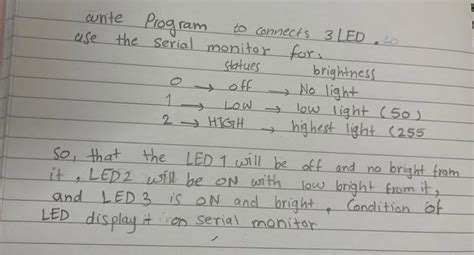 write Program to connects 3 LED.
use the serial monitor for:
statues brightness
0 → off → No light
1 → LOW → low light (50)
2 → HIGH → highest light (255
So, that the LED 1 will be off and no bright from
it, LED2 will be ON with low bright from it,
and LED 3 is ON and bright, Condition of
LED display it on serial monitor